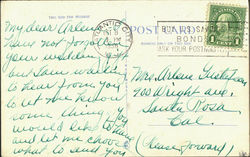 POST CARD
ATLANTIC CITY
BUY U.S. SAVINGS
BONDS
ASK YOUR POSTMASTER
My dear Arlene
have not forgotten
your wedding gift
but I am waiting
to hear from you
to let me know
something you
would like to have
and let me choose
what to send you
Mrs Arlene
900 Wright ave.
Santa Rosa
Cal.
(Please forward)